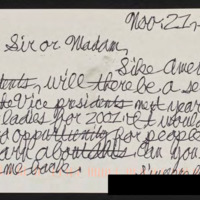 Nov. 21,
Sir or Madam,
Like Amer
dents, will there be a se
Vice presidents next year
ladies for 2001? It would
opportunity for people
about can you
me back.